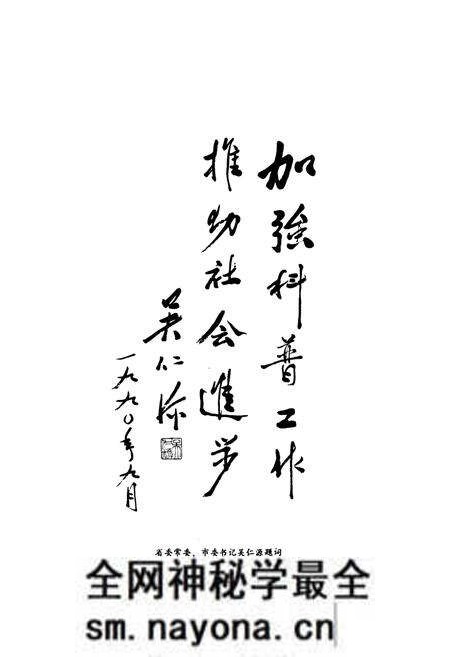 加强科普工作
推动社会進步
吴仁源
一九九〇年九月
省委常委、市委书记吴仁源题词
全网神秘学最全
sm.nayona.cn